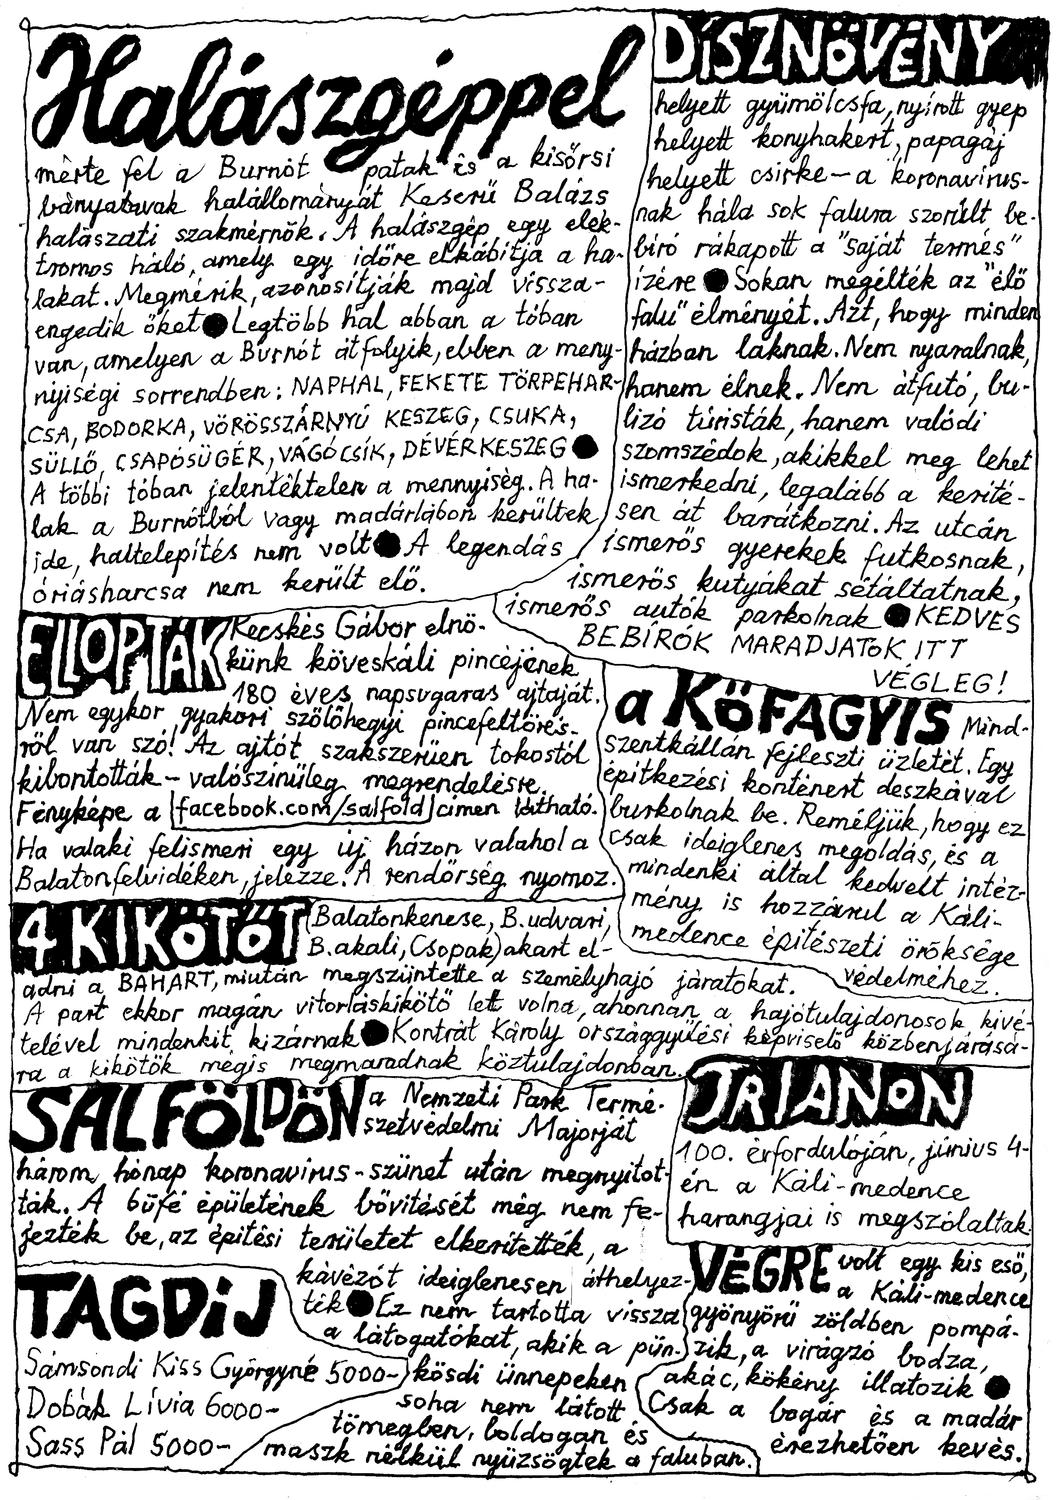 Halászgéppel
mérte fel a Burnót patak és a kisőrsi
bányatavak halállományát Keserű Balázs
halászati szakmérnök. A halászgép egy elek-
tromos háló, amely egy időre elkábítja a ha-
lakat. Megmérik, azonosítják majd vissza-
engedik őket ● Legtöbb hal abban a tóban
van, amelyen a Burnót átfolyik, ebben a meny-
nyiségi sorrendben: NAPHAL, FEKETE TÖRPEHAR-
CSA, BODORKA, VÖRÖSSZÁRNYÚ KESZEG, CSUKA,
SÜLLŐ, CSAPÓSÜGÉR, VÁGÓCSÍK, DÉVÉRKESZEG ●
A többi tóban jelentéktelen a mennyiség. A ha-
lak a Burnótból vagy madárlábon kerültek
ide, haltelepítés nem volt ● A legendás
óriásharcsa nem került elő.
DÍSZNÖVÉNY
helyett gyümölcsfa, nyírott gyep
helyett konyhakert, papagáj
helyett csirke – a koronavírus-
nak hála sok falura szorult be-
bíró rákapott a "saját termés"
ízére ● Sokan megélték az "élő
falu" élményét. Azt, hogy minden
házban laknak. Nem nyaralnak,
hanem élnek. Nem átfutó, bu-
lizó túristák, hanem valódi
szomszédok, akikkel meg lehet
ismerkedni, legalább a keríté-
sen át barátkozni. Az utcán
ismerős gyerekek futkosnak,
ismerős kutyákat sétáltatnak,
ismerős autók parkolnak ● KEDVES
BEBÍRÓK MARADJATOK ITT
VÉGLEG!
ELLOPTÁK Kecskés Gábor elnö-
künk köveskáli pincéjének
180 éves napsugaras ajtaját.
Nem egykor gyakori szőlőhegyi pincefeltörés-
ről van szó! Az ajtót szakszerűen tokostól
kibontották – valószínűleg megrendelésre.
Fényképe a facebook.com/salfold címen látható.
Ha valaki felismeri egy új házon valahol a
Balatonfelvidéken, jelezze. A rendőrség nyomoz.
a KŐFAGYIS Mind-
szentkállán fejleszti üzletét. Egy
építkezési konténert deszkával
burkolnak be. Reméljük, hogy ez
csak ideiglenes megoldás, és a
mindenki által kedvelt intéz-
mény is hozzárul a Káli-
medence építészeti öröksége
védelméhez.
4 KIKÖTŐT Balatonkenese, B.udvari,
B.akali, Csopak) akart el-
adni a BAHART, miután megszüntette a személyhajó járatokat.
A part ekkor magán vitorláskikötő lett volna, ahonnan a hajótulajdonosok kivé-
telével mindenkit kizárnak ● Kontrát Károly országgyűlési képviselő közbenjárásá-
ra a kikötők mégis megmaradnak köztulajdonban.
SALFÖLDÖN a Nemzeti Park Termé-
szetvédelmi Majorját
három hónap koronavírus-szünet után megnyitot-
ták. A büfé épületének bővítését még nem fe-
jezték be, az építési területet elkerítették, a
kávézót ideiglenesen áthelyez-
ték ● Ez nem tartotta vissza
a látogatókat, akik a pün-
kösdi ünnepeken
soha nem látott
tömegben, boldogan és
maszk nélkül nyüzsögtek a faluban.
TRIANON
100. érfordulóján, június 4-
én a Káli-medence
harangjai is megszólaltak.
TAGDÍJ
Sámsondi Kiss Györgyné 5000-
Dobák Lívia 6000-
Sass Pál 5000-
VÉGRE volt egy kis eső,
a Káli-medence
gyönyörű zöldben pompá-
zik, a virágzó bodza,
akác, kökény illatozik ●
Csak a bogár és a madár
érezhetően kevés.